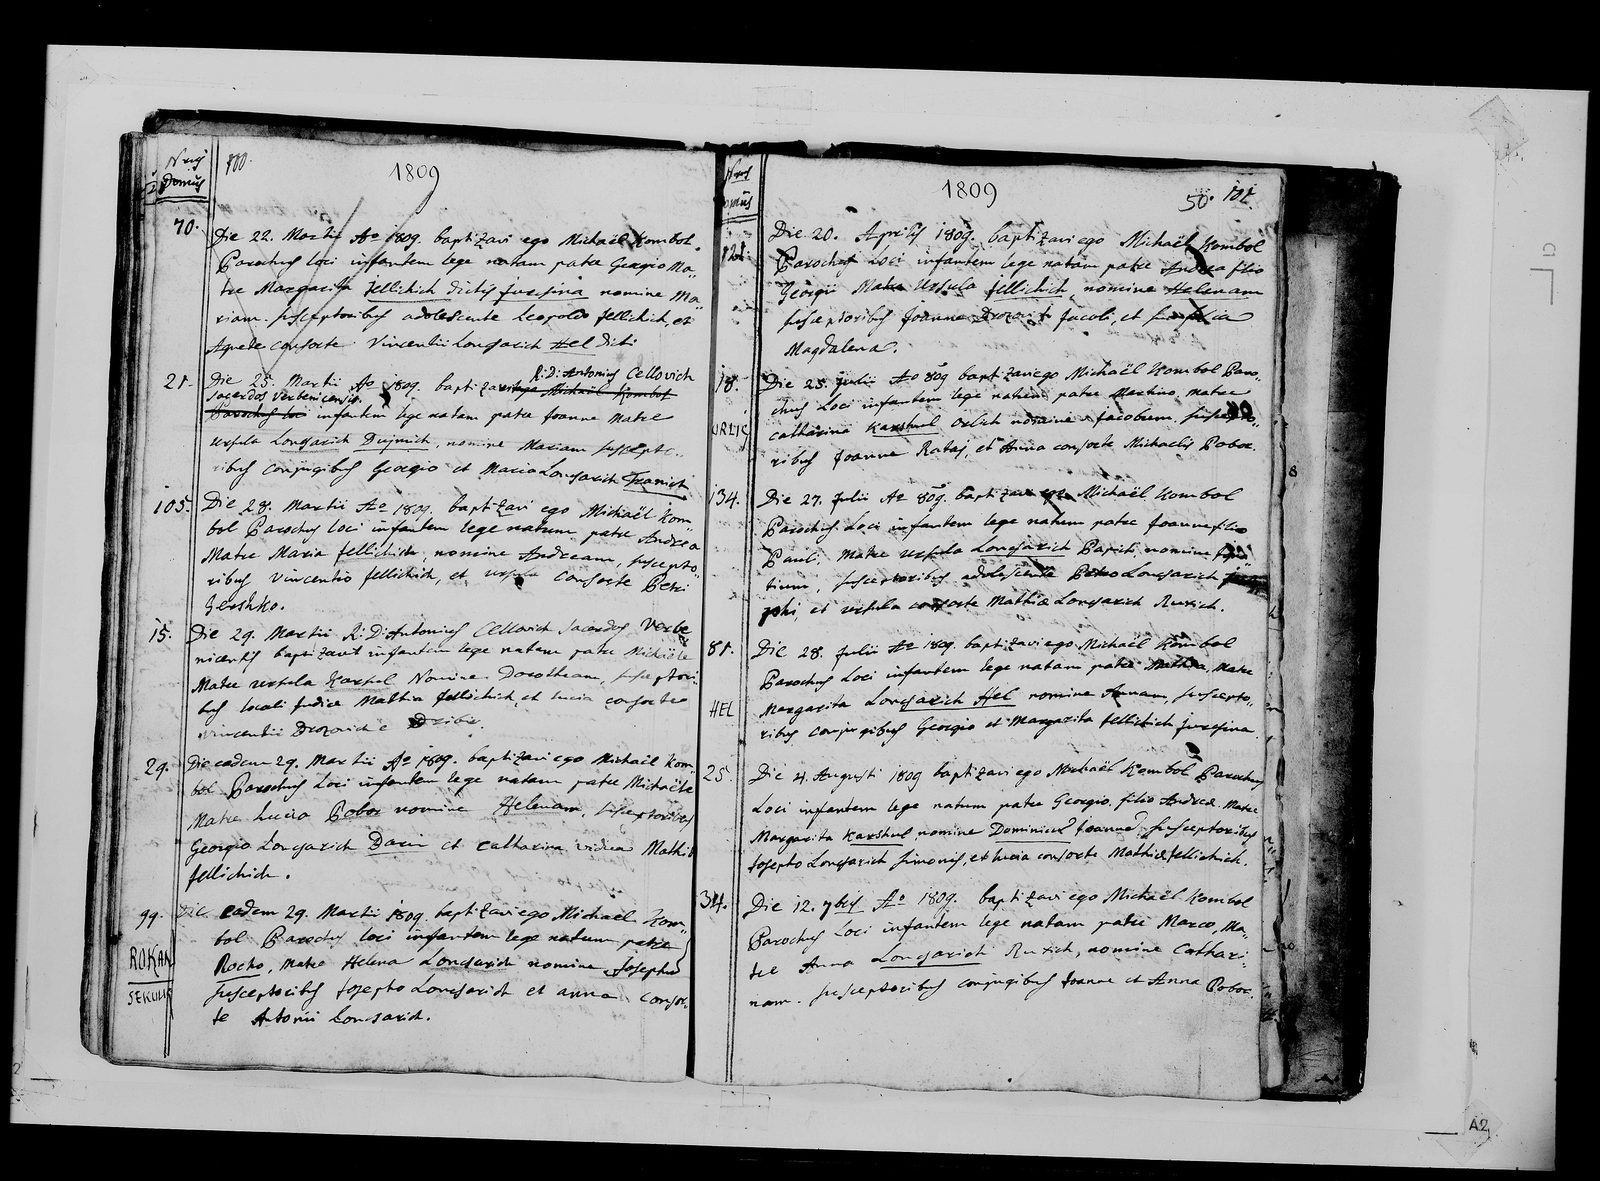 Domus
100.
1809
70.
Die 22. Martii Ao 1809. baptizavi ego Michaël Kombol.
Parochus loci infantem lege natam patre Georgio Ma-
tre Margarita Jellichich dictis Jursina nomine Ma-
riam. Susceptoribus adolescente Leopoldo Jellichich, et
Agnete consorte Vincentii Longarich Hel dicti
21.
Die 25. Martii Ao 1809. baptizavit R: D: Antonius Cellovich
Sacerdos Verbenicensis
Parochus loci infantem lege natam patre Joanne Matre
Ursula Longarich Dujmich, nomine Mariam suscepto-
ribus conjugibus Georgio et Maria Longarich Franich
105.
Die 28. Martii Ao 1809. baptizavi ego Michaël Kom-
bol Parochus loci infantem lege natum patre Andrea
Matre Maria Jellichich, nomine Andream, suscepto-
ribus Vincentio Jellichich, et Ursula consorte Petri
Gershko.
15.
Die 29. Martii R: D: Antonius Cellovich Sacerdos Verbe
nicensis baptizavit infantem lege natam patre Michaële
Matre Ursula Karstul Nomine Dorotheam, susceptori-
bus locali Judice Mathia Jellichich, et Lucia consorte
Vincentii Drozovich
29.
Die eadem 29. Martii Ao 1809. baptizavi ego Michaël Kom-
bol Parochus Loci infantem lege natam patre Michaële
Matre Lucia Pobor nomine Helenam, susceptoribus
Georgio Longarich Darin et Catharina vidua Mathiæ
Jellichich.
99.
Die eadem 29. Martii 1809. baptizavi ego Michaël Kom-
bol Parochus loci infantem lege natum patre
ROKAN
Rocho, Matre Helena Longarich nomine Josephum
SEKULIN
Susceptoribus Josepho Longarich et Anna consor-
te Antonii Longarich.
1809
50. 101
121.
Die 20. Aprilis 1809. baptizavi ego Michaël Kombol
Parochus Loci infantem lege natam patre Andrea filio
Georgii Matre Ursula Jellichich, nomine Helenam
susceptoribus Joanne Jacobi, et
Magdalena.
18.
Die 25 Julii Ao 809 baptizavi ego Michaël Kombol Paro-
chus Loci infantem lege natum patre Martino, matre
ORLIC
Catharina Karstul Orlich nomine Jacobum, suscepto-
ribus Joanne Rataj, et Anna consorte Michaelis Pobor.
134.
Die 27. Julii Ao 809. baptizavi ego Michaël Kombol
Parochus Loci infantem lege natum patre Joanne filio
Pauli. Matre Ursula Longarich Papich nomine
susceptoribus adolescente Petro Longarich
et Ursula consorte Mathiæ Longarich Ruxich.
81.
Die 28. Julii Ao 1809. baptizavi ego Michaël Kombol
Parochus Loci infantem lege natam patre Mathia, Matre
HEL
Margarita Longarich Hel nomine Annam, suscepto-
ribus conjugibus Georgio et Margarita Jellichich Jursina.
25.
Die 4. Augusti 1809 baptizavi ego Michaël Kombol Parochus
Loci infantem lege natum patre Georgio filio Andreæ. Matre
Margarita Karstul nomine Dominicum Joannem susceptoribus
Josepho Longarich Simonis, et Lucia consorte Mathiæ Jellichich.
34.
Die 12. 7bris Ao 1809. baptizavi ego Michaël Kombol
Parochus Loci infantem lege natam patre Marco, Ma-
tre Anna Longarich Ruxich, nomine Cathari-
nam. susceptoribus conjugibus Joanne et Anna Pobor.
8
A2